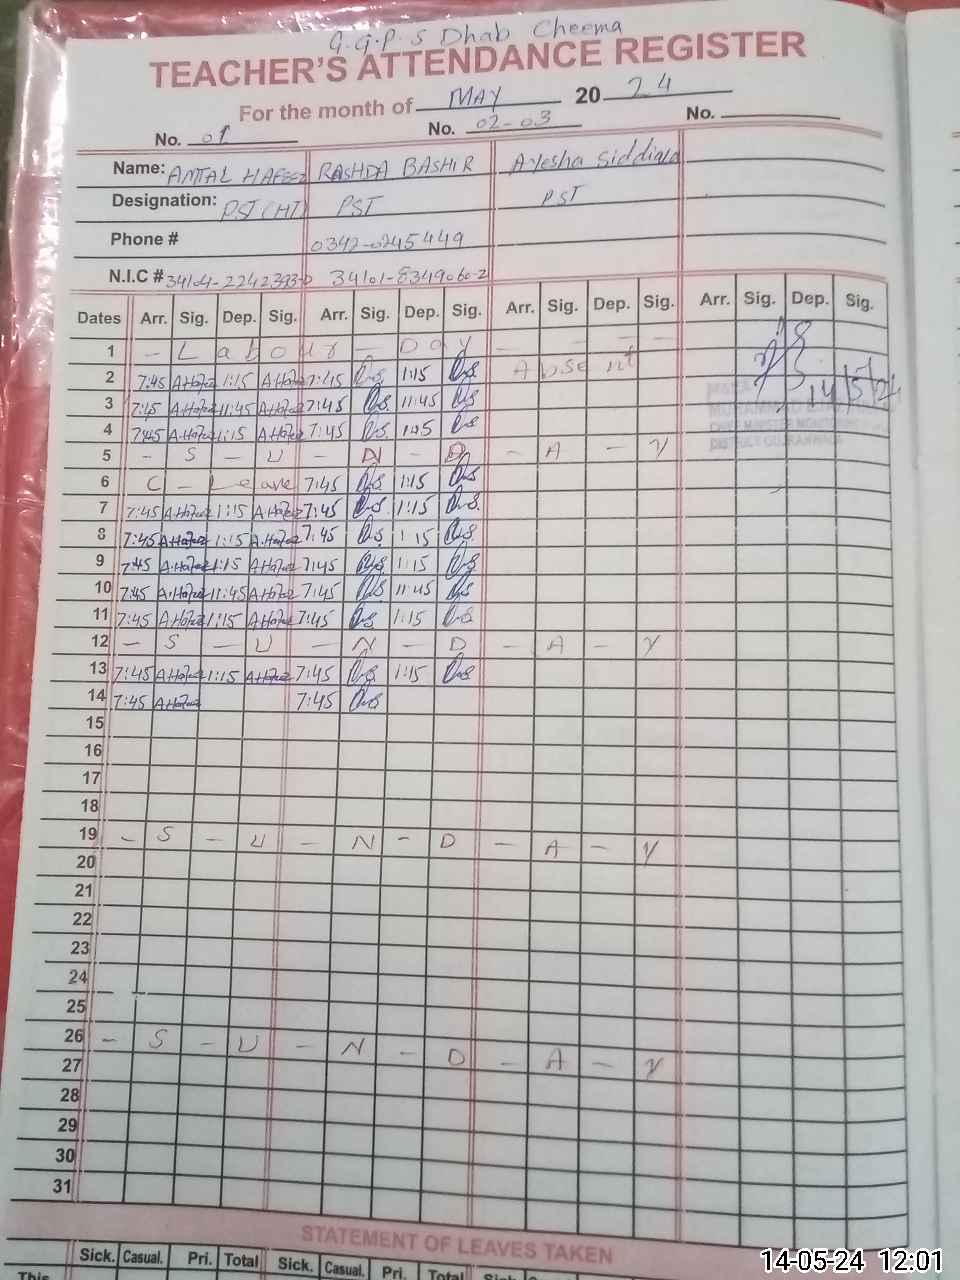 G.G.P.S Dhab Cheema
TEACHER'S ATTENDANCE REGISTER
For the month of MAY 20 24
No. 01 No. 02-03 No.
Name: AMTAL HAFEEZ RASHDA BASHIR Ayesha Siddiqa
Designation: PST (HT) PST PST
Phone # 0342-0245449
N.I.C # 34104-2242393-0 34101-8349060-2
Dates Arr. Sig. Dep. Sig. Arr. Sig. Dep. Sig. Arr. Sig. Dep. Sig. Arr. Sig. Dep. Sig.
1 - Labour - Day - - -
2 7:45 A.Hafeez 1:15 A.Hafeez 7:45 1:15 Absent
14/5/24
3 7:45 A.Hafeez 11:45 A.Hafeez 7:45 11:45
MUHAMMAD
4 7:45 A.Hafeez 1:15 A.Hafeez 7:45
CHIEF MINISTER MONITORING
DISTRICT GUJRANWALA
5 - S - U - N - D - A - Y
6 C - Leave 7:45 1:15
7 7:45 A.Hafeez 1:15 A.Hafeez 7:45 1:15
8 7:45 A.Hafeez 1:15 A.Hafeez 7:45 1:15
9 7:45 A.Hafeez 1:15 A.Hafeez 7:45 1:15
10 7:45 A.Hafeez 11:45 A.Hafeez 7:45 11:45
11 7:45 A.Hafeez 1:15 A.Hafeez 7:45 1:15
12 - S - U - N - D - A - Y
13 7:45 A.Hafeez 1:15 A.Hafeez 7:45 1:15
14 7:45 A.Hafeez 7:45
15
16
17
18
19 - S - U - N - D - A - Y
20
21
22
23
24
25
26 - S - U - N - D - A - Y
27
28
29
30
31
STATEMENT OF LEAVES TAKEN
Sick. Casual. Pri. Total Sick. Casual. Pri. Total Sick.
This
14-05-24 12:01